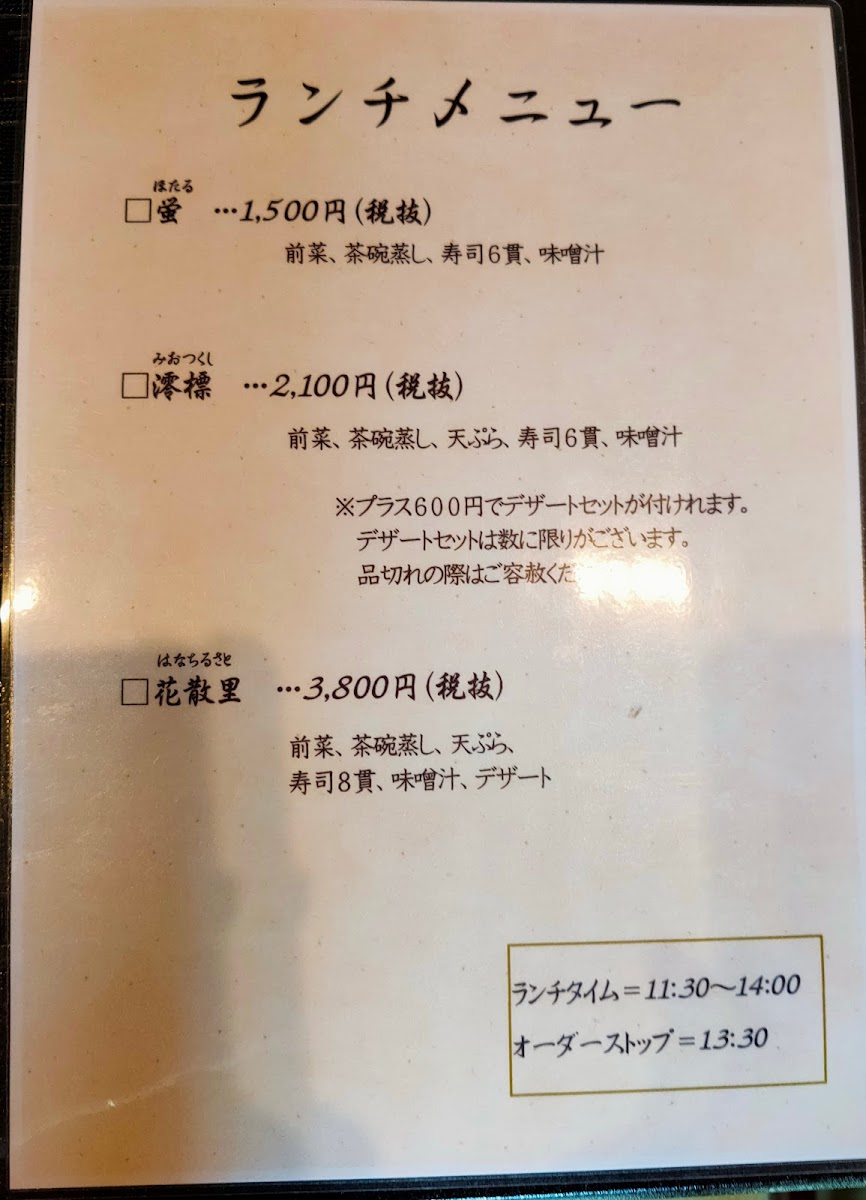 ランチメニュー
ほたる
□蛍 …1,500円(税抜)
前菜、茶碗蒸し、寿司6貫、味噌汁
みおつくし
□澪標 …2,100円(税抜)
前菜、茶碗蒸し、天ぷら、寿司6貫、味噌汁
※プラス600円でデザートセットが付けれます。
デザートセットは数に限りがございます。
品切れの際はご容赦くだ
はなちるさと
□花散里 …3,800円(税抜)
前菜、茶碗蒸し、天ぷら、
寿司8貫、味噌汁、デザート
ランチタイム=11:30〜14:00
オーダーストップ=13:30